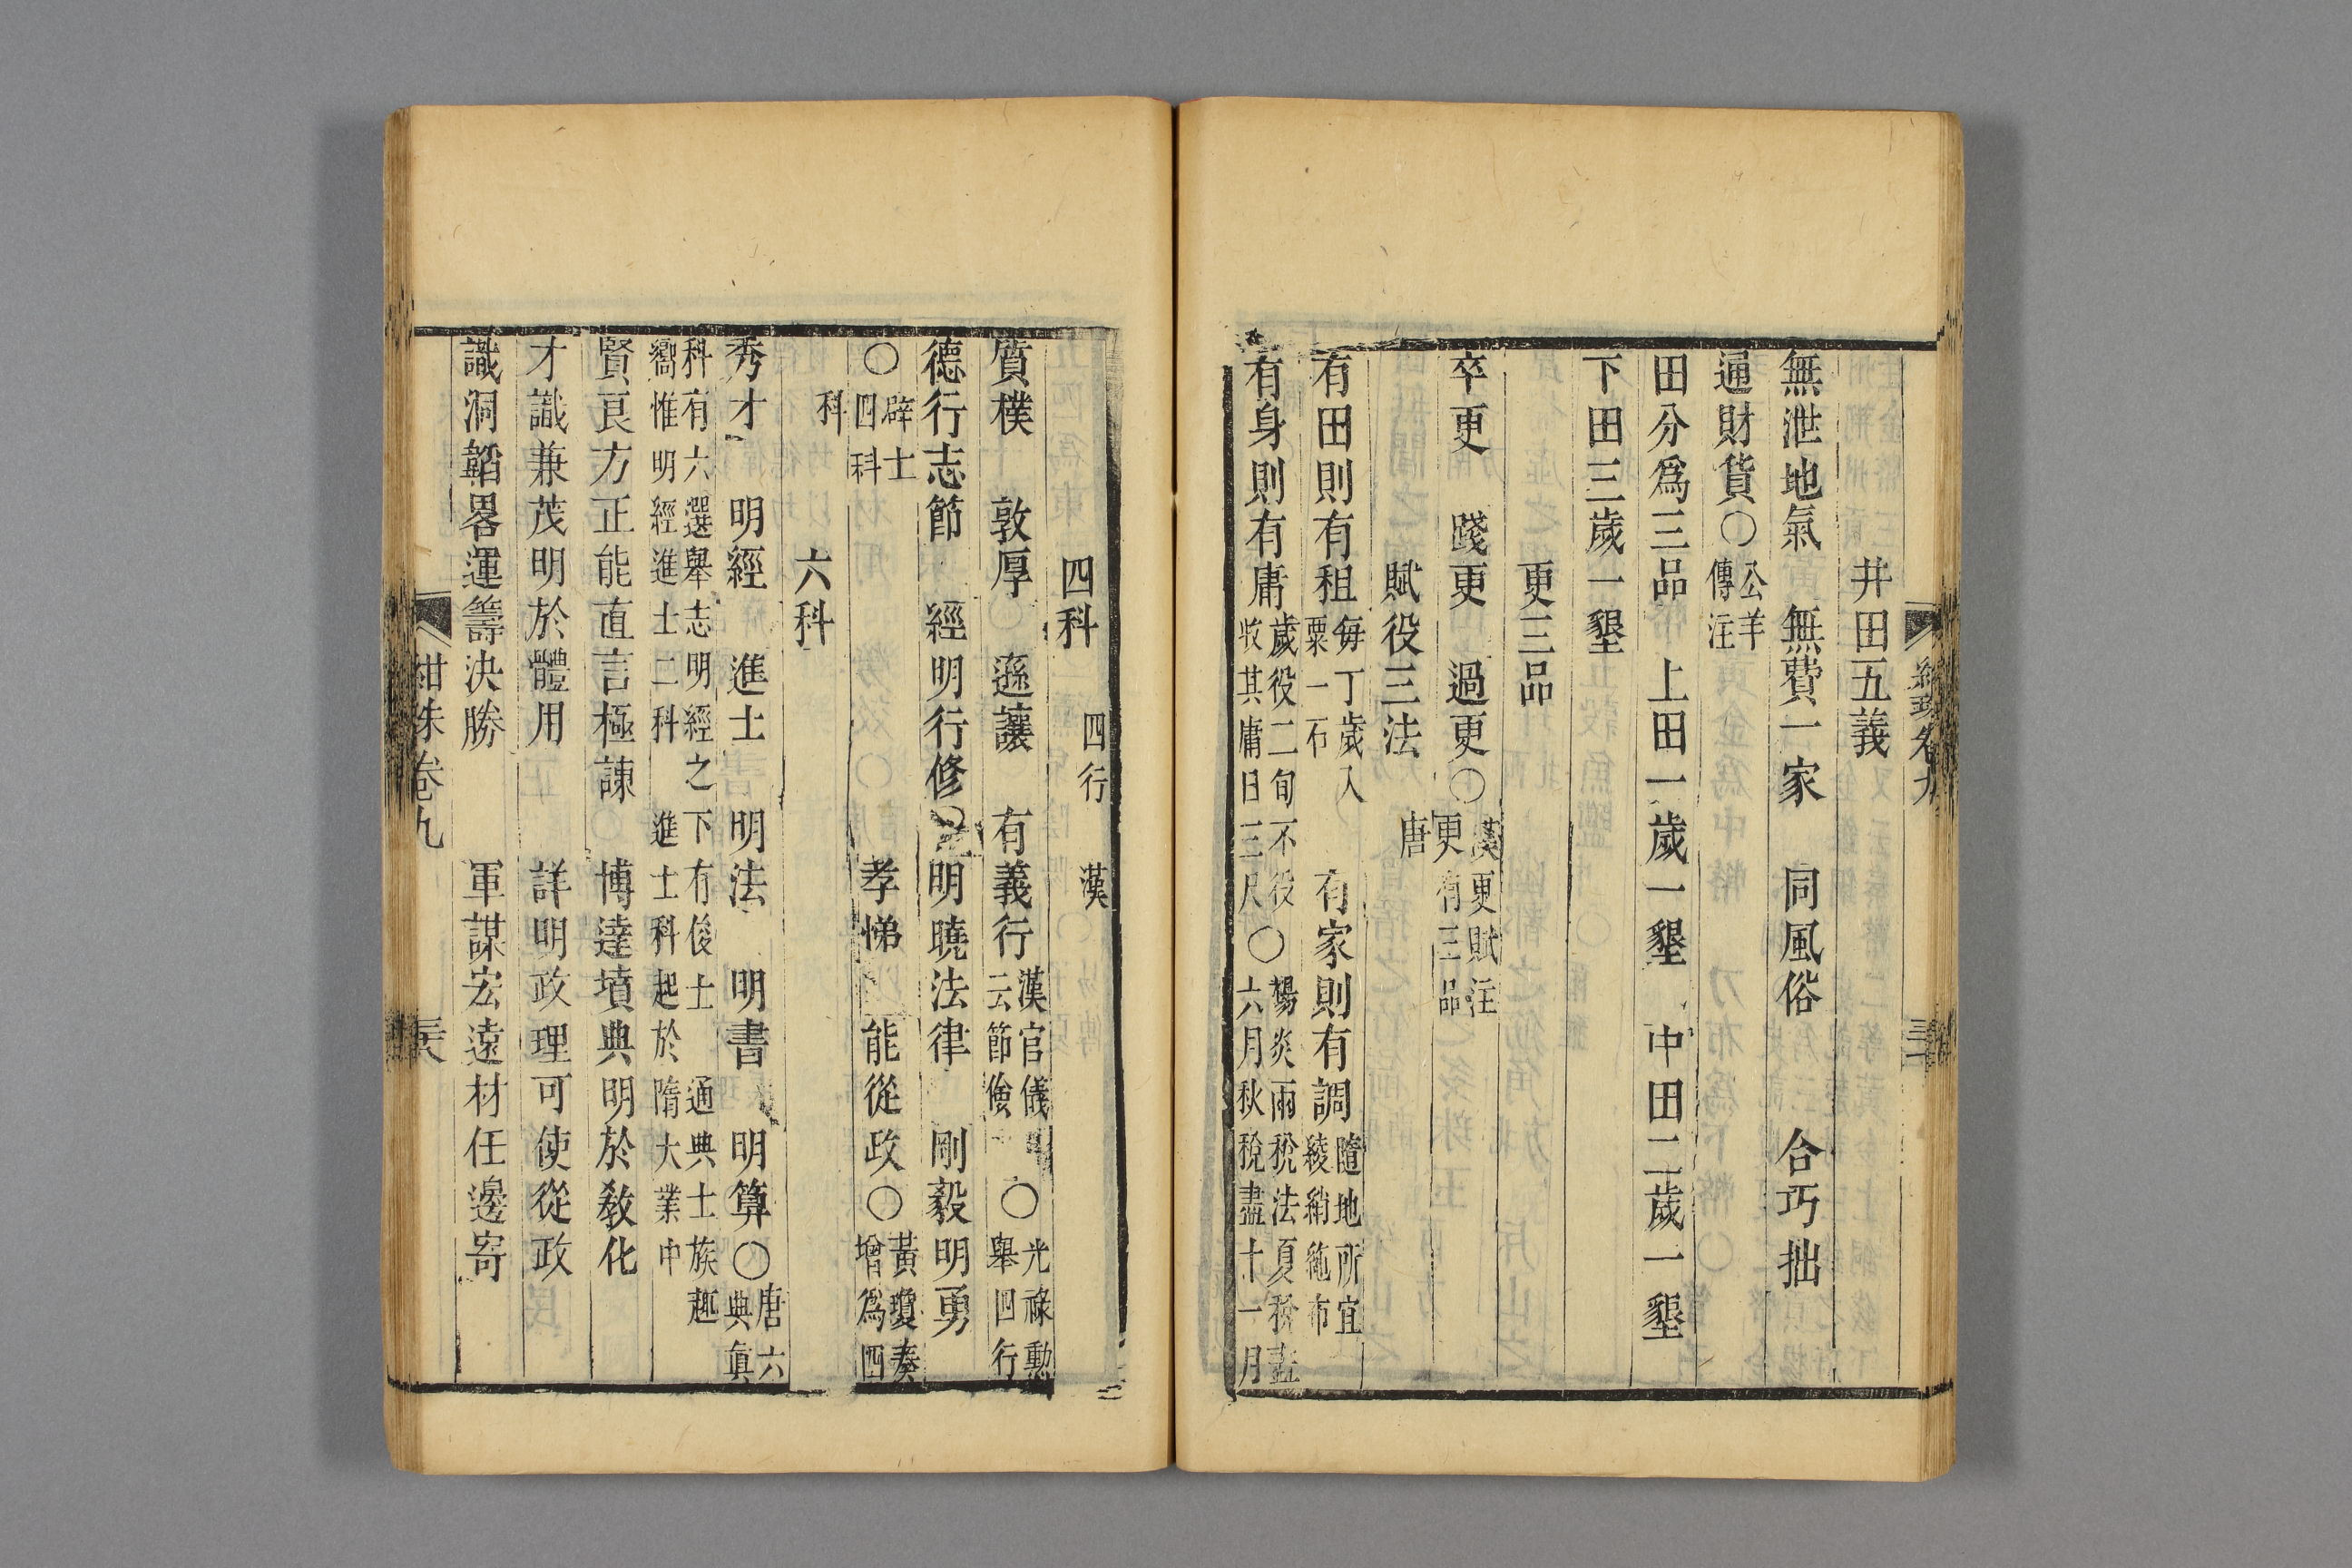 井田五義
無泄地氣　無費一家　同風俗　合巧拙
通財貨〇公羊傳注
田分爲三品　上田一歲一墾　中田二歲一墾
下田三歲一墾
更三品
卒更　踐更　過更〇漢更賦注更有三品
賦役三法　唐
有田則有租每丁歲入粟一石　有家則有調隨地所宜綾綃絁布
有身則有庸歲役二旬不役收其庸日三尺〇楊炎兩稅法夏稅盡六月秋稅盡十一月
四科　四行　漢
質樸　敦厚　遜讓　有義行漢官儀云節儉〇光祿勲舉四行
德行志節　經明行修　明曉法律　剛毅明勇
〇辟士四科　孝悌　能從政〇黃瓊奏增爲四
科
六科
秀才　明經　進士　明法　明書　明算〇唐六典眞
科有六選舉志明經之下有俊士　通典士族趣嚮惟明經進士二科　進士科起於隋大業中
賢良方正能直言極諫　博達墳典明於教化
才識兼茂明於體用　詳明政理可使從政
識洞韜畧運籌決勝　軍謀宏遠材任邊寄
紺珠卷九